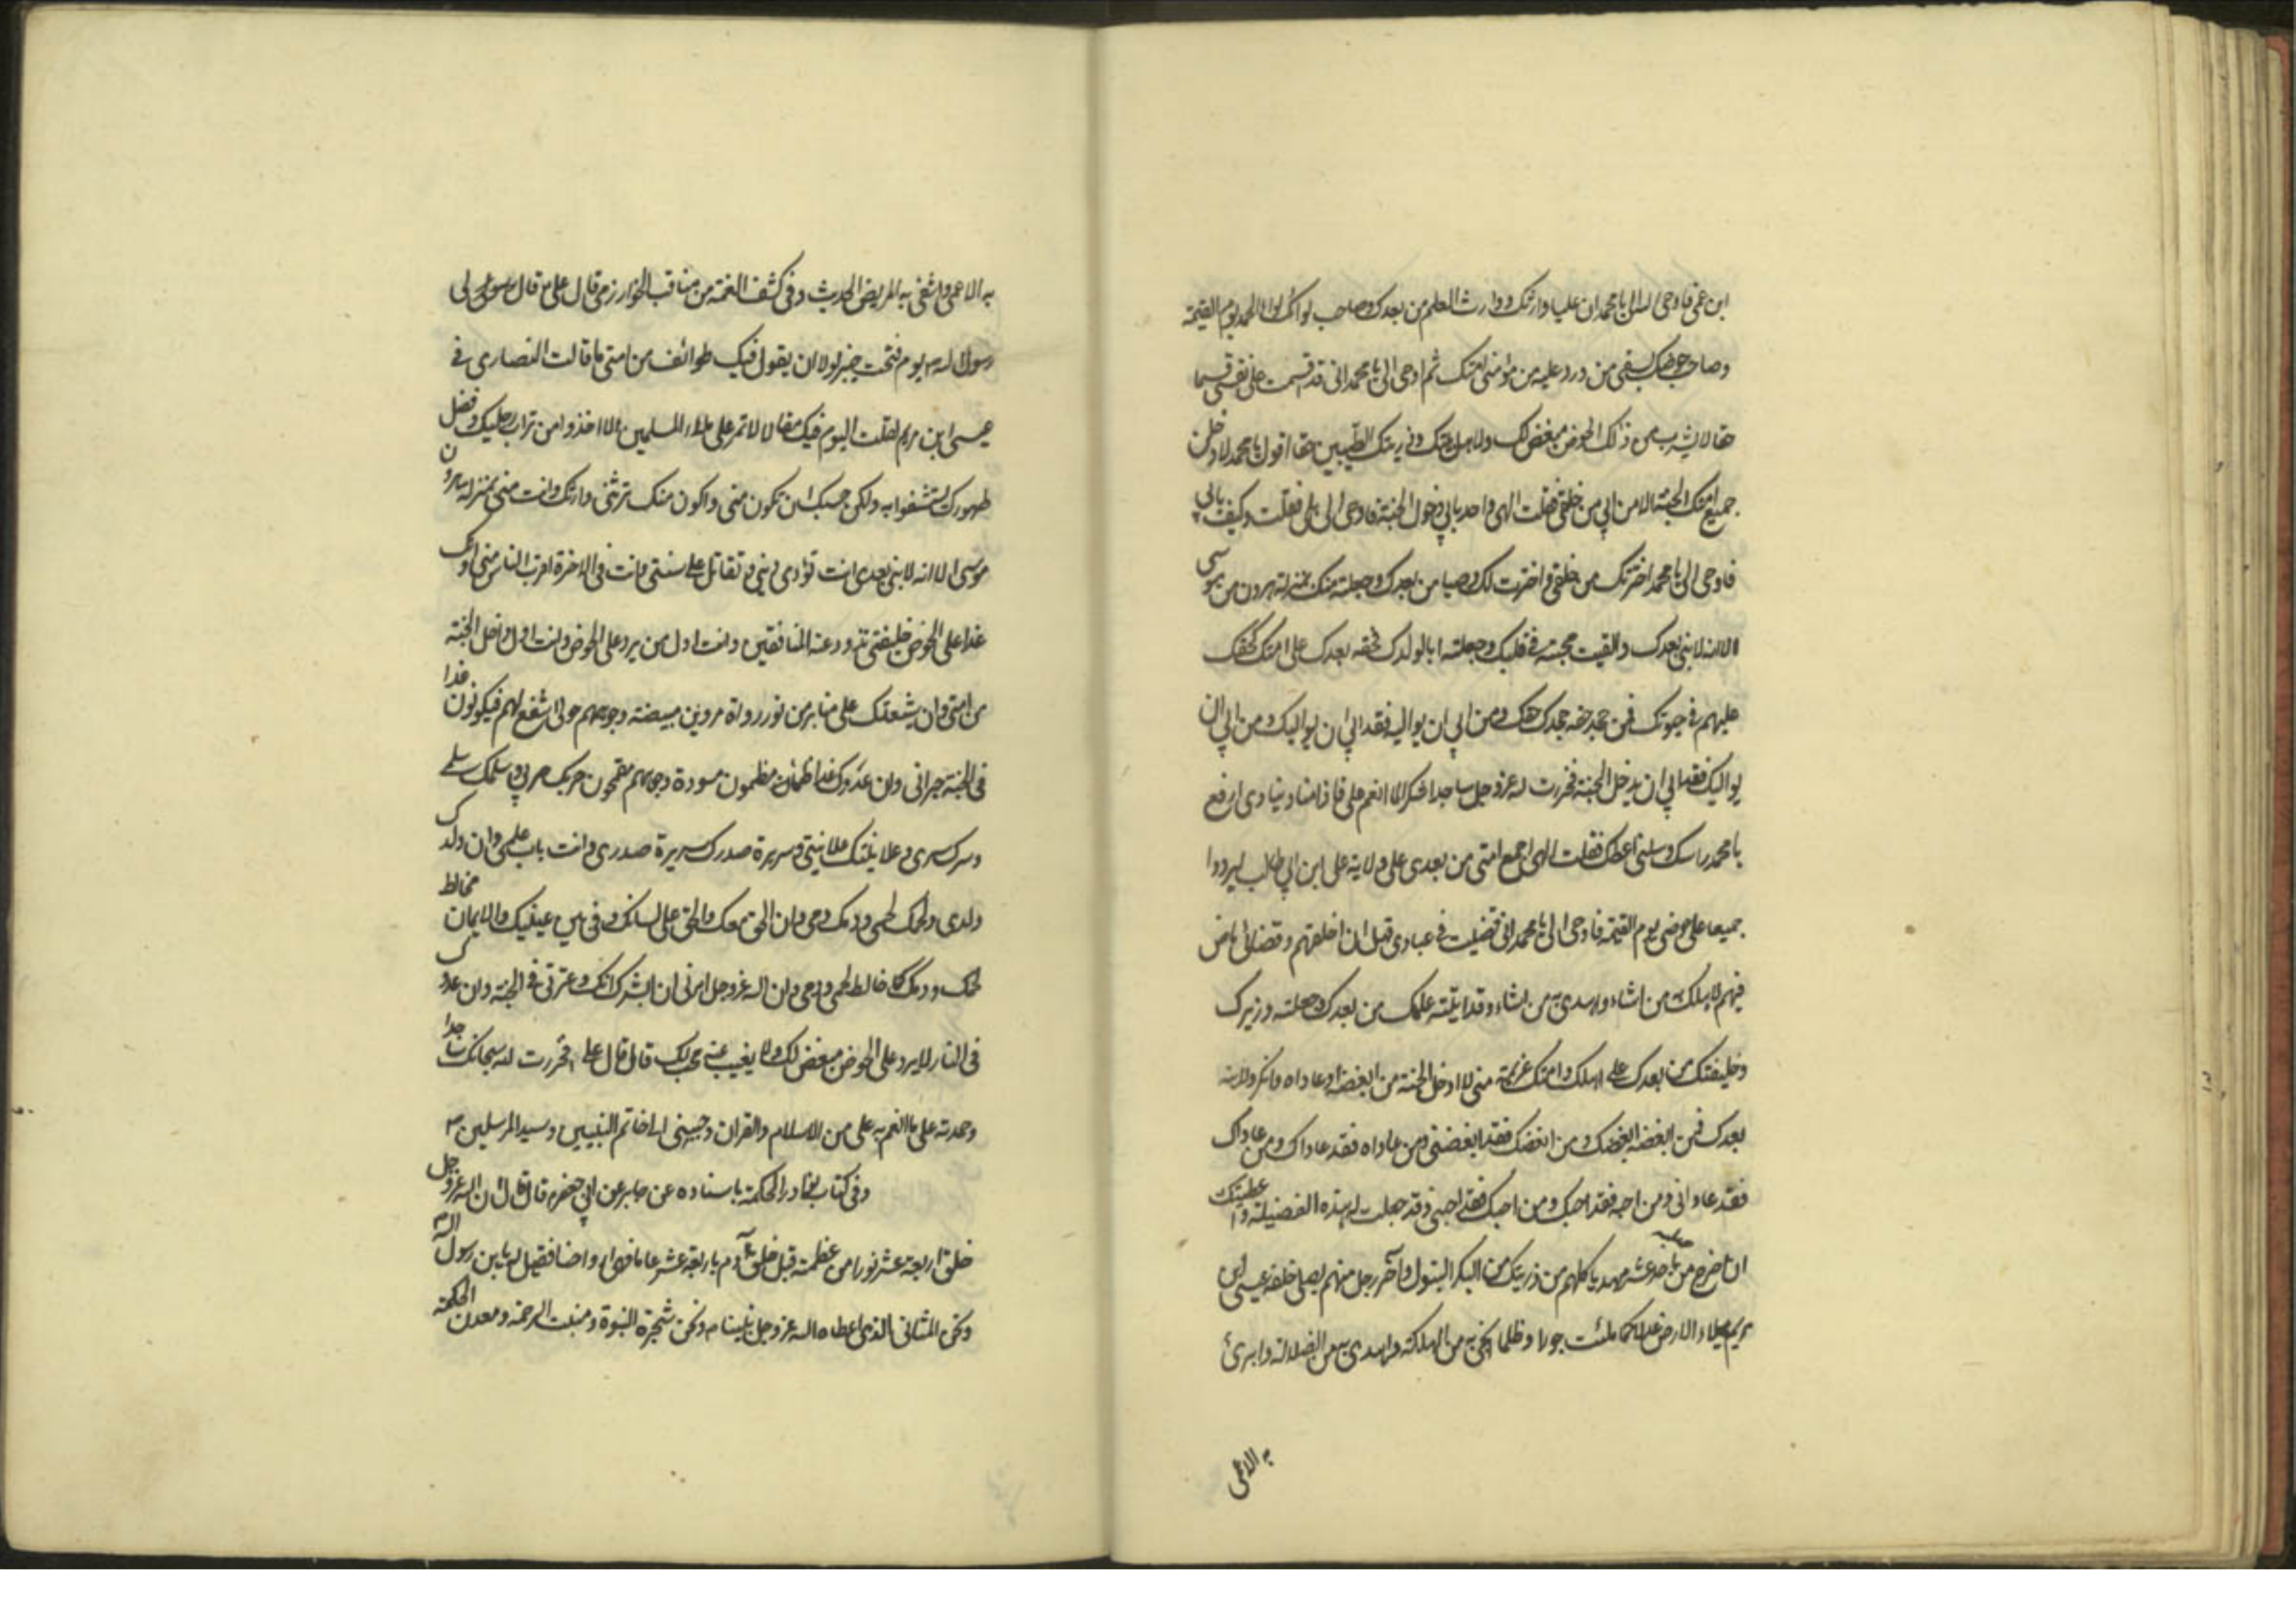 ابن عمی فاوحی الله الی یا محمد ان علیا وارثک ووارث العلم من بعدک وصاحب لوائک لواء الحمد یوم القیمة
وصاحب حوضک یسقی من ورد علیه من مؤمنی امتک ثم اوحی الی یا محمد انی قد قسمت علی نفسی قسما
حقا لا یشرب من ذلک الحوض مبغض لک ولاهل بیتک وذریتک الطیبین حقا اقول یا محمد لادخلن
جمیع امتک الجنة الا من ابی من خلقی فقلت الهی واحد یابی دخول الجنة فاوحی الی بلی فقلت وکیف یابی
فاوحی الی یا محمد اخترتک من خلقی واخترت لک وصیا من بعدک وجعلته منک بمنزلة هرون من موسی
الا انه لا نبی بعدک والقیت محبته فی قلبک وجعلته ابا لولدک فحقه بعدک علی امتک کحقک
علیهم فی حیوتک فمن جحد حقه جحد حقک ومن ابی ان یوالیه فقد ابی ان یوالیک ومن ابی ان
یوالیک فقد ابی ان یدخل الجنة فخررت لله عزوجل ساجدا شکرا لما انعم علی فاذا مناد ینادی ارفع
یا محمد راسک وسلنی اعطک فقلت الهی اجمع امتی من بعدی علی ولایة علی ابن ابی طالب لیردوا
جمیعا علی حوضی یوم القیمة فاوحی الی یا محمد انی قضیت فی عبادی قبل ان اخلقهم وقضائی ماض
فیهم لاهلک به من اشاء واهدی به من اشاء وقد اتیته علمک من بعدک وجعلته وزیرک
وخلیفتک من بعدک علی اهلک وامتک عزیمة منی لا ادخل الجنة من ابغضه وعاداه وانکر ولایته
بعدک فمن ابغضه ابغضک ومن ابغضک فقد ابغضنی ومن عاداه فقد عاداک ومن عاداک
فقد عادانی ومن احبه فقد احبک ومن احبک فقد احبنی وقد جعلت له هذه الفضیلة واعطیتک
ان اخرج من صلبه احد عشر مهدیا کلهم من ذریتک من البکر البتول وآخر رجل منهم یصلی خلفه عیسی ابن
مریم یملاء الارض عدلا کما ملئت جورا وظلما انجی به من الهلکة واهدی به من الضلالة وابرئ
به الاعمی
به الاعمی واشفی به المریض الحدیث وفی کشف الغمة من مناقب الخوارزمی قال علی ع قال لی
رسول الله ص یوم فتحت خیبر لولا ان یقول فیک طوائف من امتی ما قالت النصاری فی
عیسی ابن مریم لقلت الیوم فیک مقالا لا تمر علی ملاء المسلمین الا اخذوا من تراب رجلیک وفضل
طهورک یستشفوا به ولکن حسبک ان تکون منی واکون منک ترثنی وارثک وانت منی بمنزلة هارون
موسی الا انه لا نبی بعدی انت تؤدی دینی وتقاتل علی سنتی وانت فی الاخرة اقرب الناس منی وانک
غدا علی الحوض خلیفتی تذود عنه المنافقین وانت اول من یرد علی الحوض وانت اول داخل الجنة
من امتی وان شیعتک علی منابر من نور رواة مرویین مبیضة وجوههم حولی اشفع لهم فیکونون غدا
فی الجنة جیرانی وان عدوک غدا ظماء مظمئون مسودة وجوههم مقمحون حربک حربی وسلمک سلمی
وسرک سری وعلانیتک علانیتی وسریرة صدرک سریرة صدری وانت باب علمی وان ولدک
ولدی ولحمک لحمی ودمک دمی وان الحق معک والحق علی لسانک وفی بین عینیک والایمان مخالط
لحمک ودمک کما خالط لحمی ودمی وان الله عزوجل امرنی ان ابشرک انک وعترتی فی الجنة وان عدوک
فی النار لا یرد علی الحوض مبغض لک ولا یغیب عنه محب لک قال قال علی فخررت لله سبحانه ساجدا
وحمدته علی ما انعم به علی من الاسلام والقران وحببنی الی خاتم النبیین وسید المرسلین ص
وفی کتاب نوادر الحکمة باسناده عن جابر عن ابی جعفر ع قال قال ان الله عزوجل
خلق اربعة عشر نورا من عظمته قبل خلق آدم باربعة عشر عاما فهی ارواحنا فقیل له یا بن رسول الله
ونحن المثانی الذی اعطاه الله عزوجل نبینا ص ونحن شجرة النبوة ومنبت الرحمة ومعدن الحکمة